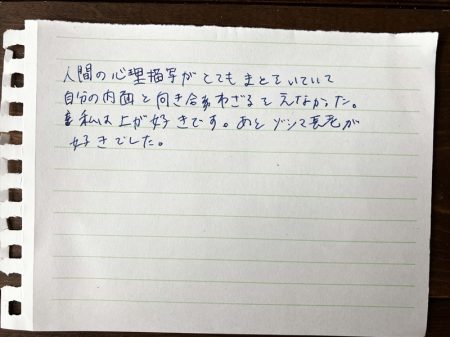 人間の心理描写がとてもまとをいていて
自分の内面と向き合わざるをえなかった。
私は上が好きです。あとゾシマ長老が
好きでした。